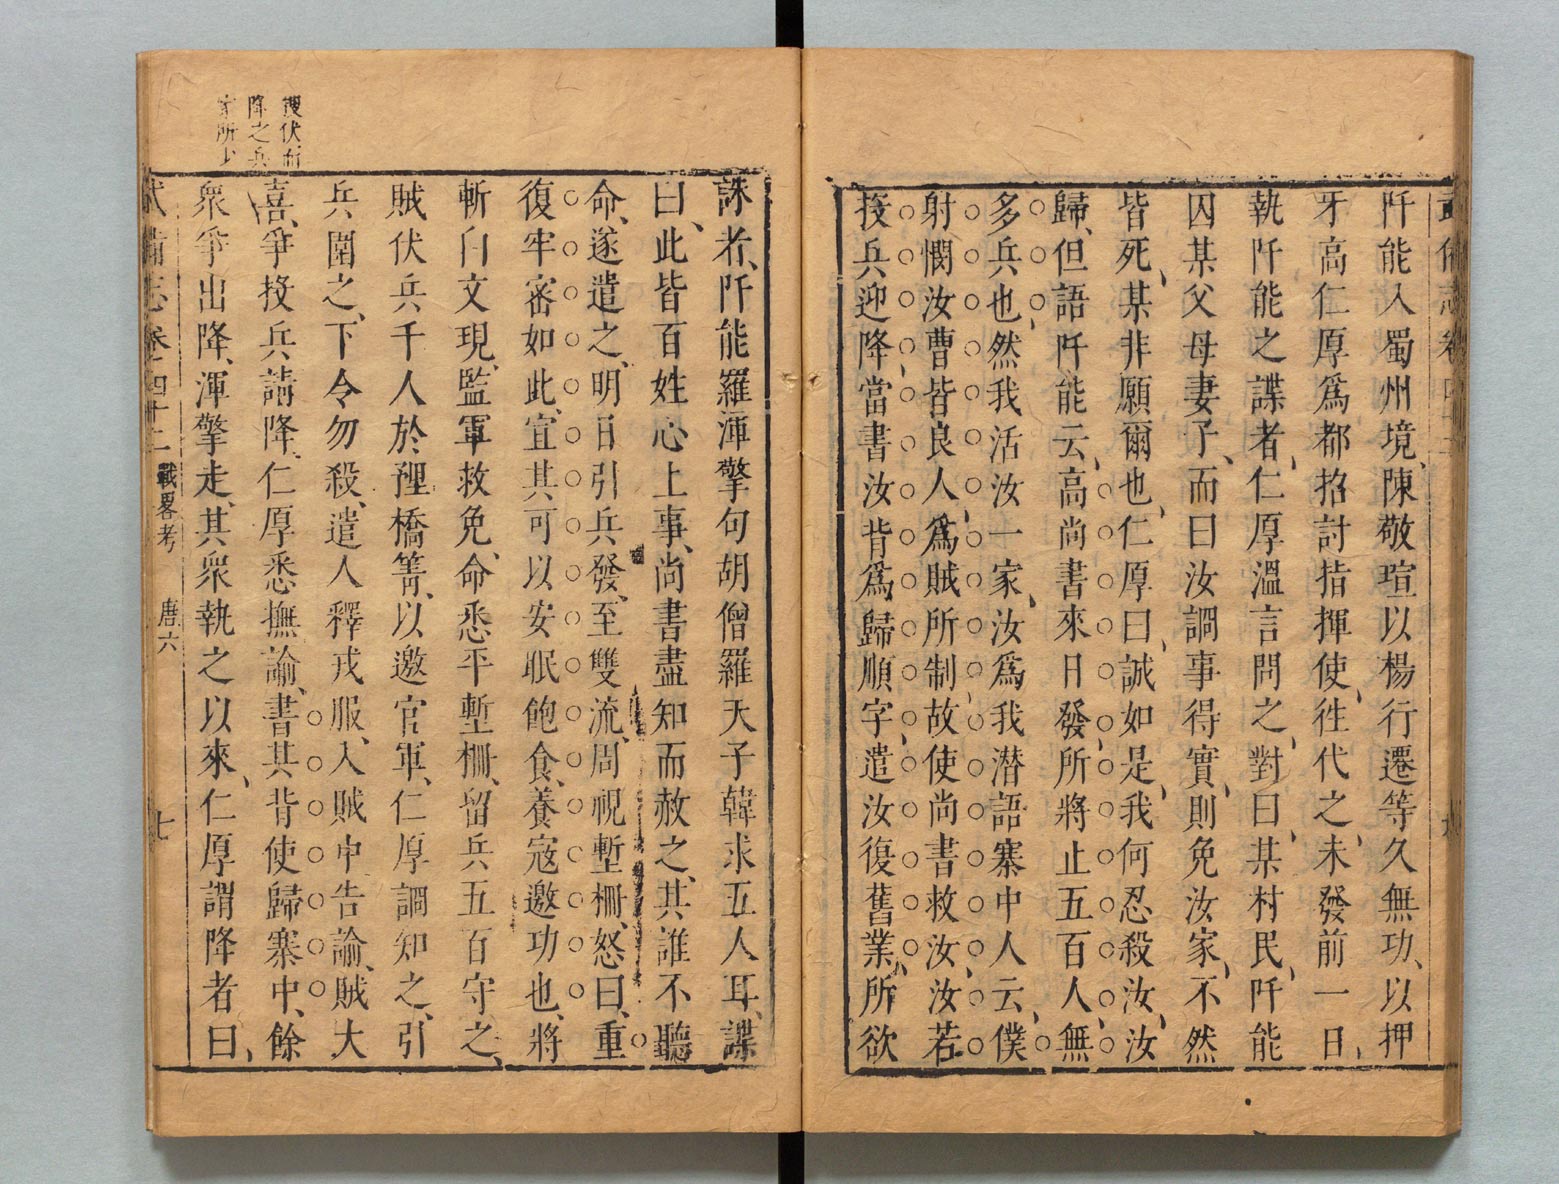 阡能入蜀州境陳敬瑄以楊行遷等久無功以押
牙高仁厚爲都招討指揮使徃代之未發前一日
執阡能之諜者仁厚溫言問之對曰某村民阡能
囚某父母妻子而曰汝調事得實則免汝家不然
皆死某非願爾也仁厚曰誠如是我何忍殺汝汝
歸但語阡能云高尚書來日發所將止五百人無
多兵也然我活汝一家汝爲我潜語寨中人云僕
射憫汝曹皆良人爲賊所制故使尚書救汝汝若
投兵迎降當書汝背爲歸順字遣汝復舊業所欲
誅者阡能羅渾擎句胡僧羅夫子韓求五人耳諜
曰此皆百姓心上事尚書盡知而赦之其誰不聽
命遂遣之明日引兵發至雙流周視塹柵怒曰重
復牢審如此宜其可以安眠飽食養寇邀功也將
斬白文現監軍救免命悉平塹柵留兵五百守之
賊伏兵千人於𥚃橋箐以邀官軍仁厚調知之引
兵圍之下令勿殺遣人釋戎服入賊中告諭賊大
喜爭投兵請降仁厚悉撫諭書其背使歸寨中餘
衆爭出降渾擎走其衆執之以來仁厚謂降者曰
搜伏而
降之兵
家所少
武備志卷四十二 戰畧考 唐六 七